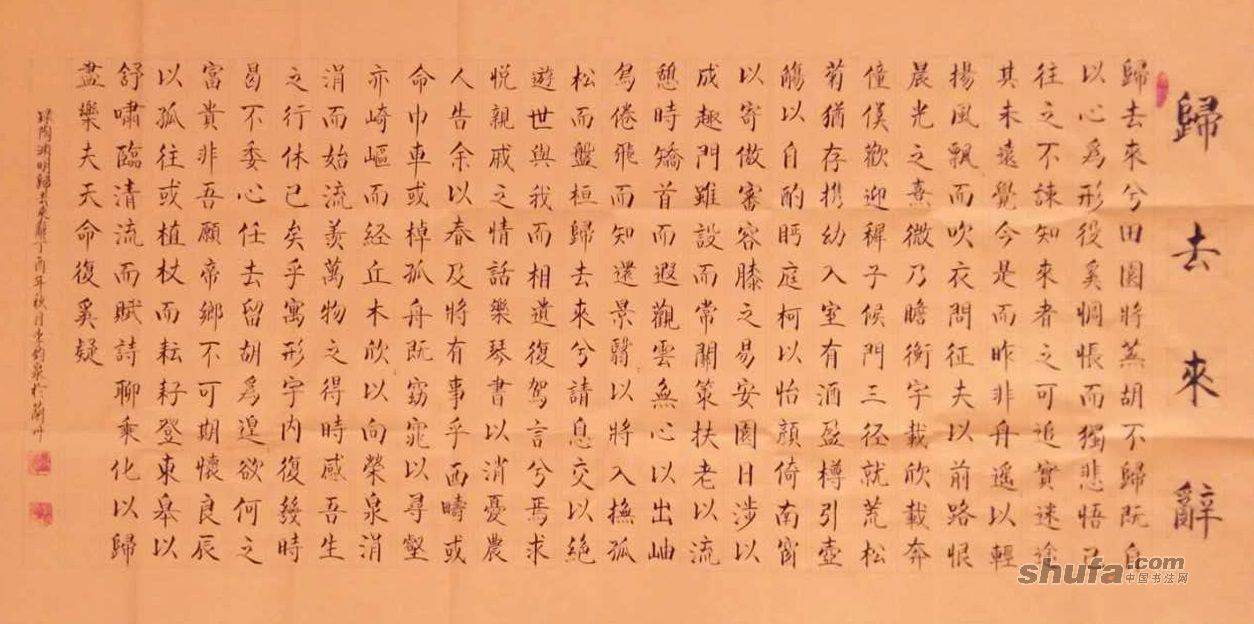 歸去來辭
歸去來兮田園將蕪胡不歸既自
以心為形役奚惆悵而獨悲悟已
往之不諫知來者之可追實迷途
其未遠覺今是而昨非舟遙以輕
揚風飄而吹衣問征夫以前路恨
晨光之熹微乃瞻衡宇載欣載奔
僮僕歡迎稺子候門三径就荒松
菊猶存携幼入室有酒盈樽引壺
觴以自酌眄庭柯以怡顏倚南窗
以寄傲審容膝之易安園日涉以
成趣門雖設而常關策扶老以流
憩時矯首而遐觀雲無心以出岫
鳥倦飛而知還景翳以將入撫孤
松而盤桓歸去來兮請息交以絕
遊世與我而相遺復駕言兮焉求
悦親戚之情話樂琴書以消憂農
人告余以春及將有事乎西疇或
命巾車或棹孤舟既窈窕以尋壑
亦崎嶇而经丘木欣以向榮泉涓
涓而始流羨萬物之得時感吾生
之行休已矣乎寓形宇内復幾時
曷不委心任去留胡為遑欲何之
富貴非吾願帝鄉不可期懷良辰
以孤往或植杖而耘耔登東皋以
舒嘯臨清流而賦詩聊乘化以歸
盡樂夫天命復奚疑
録陶淵明歸去來辭丁酉年秋月於蘭州
shufa.com
中国书法网